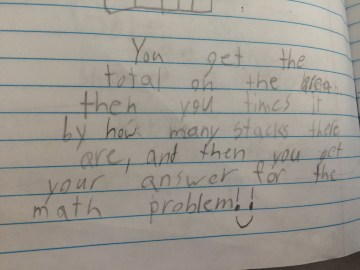 You get the
total on the area
then you times it
by how many stacks there
are, and then you get
your answer for the
math problem!!